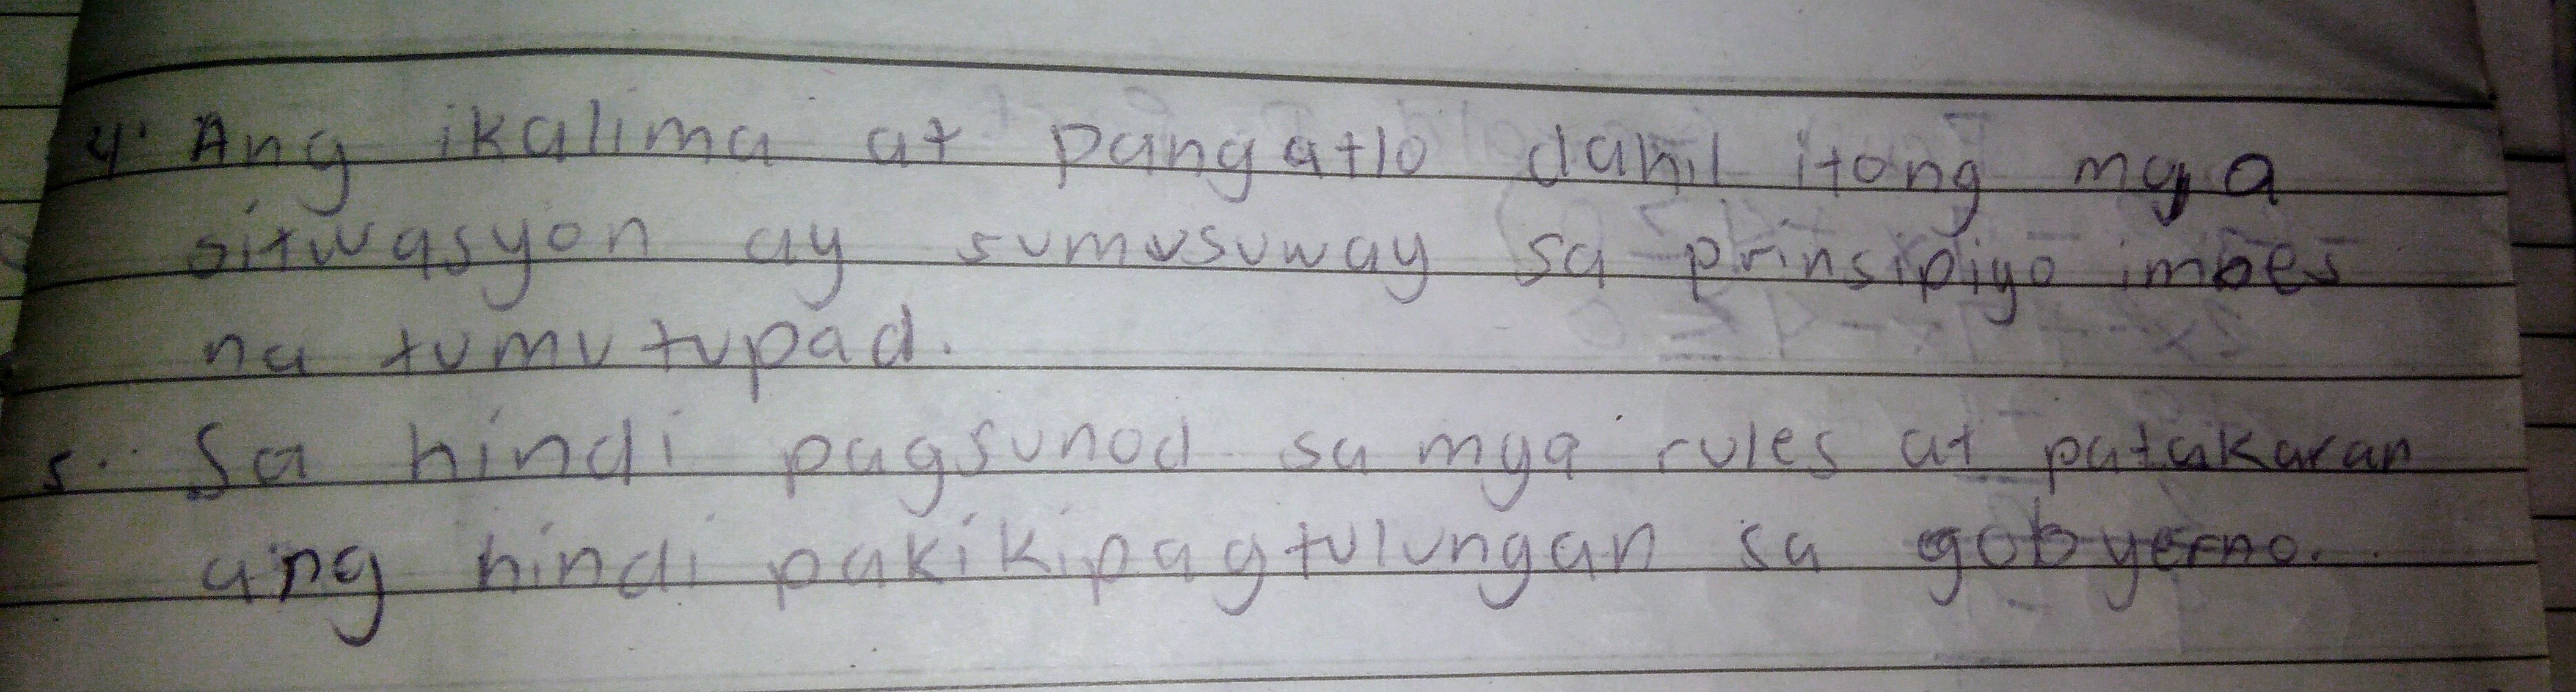 4. Ang ikalima at pangatlo dahil itong mga
sitwasyon ay sumusuway sa prinsipiyo imbes
na tumutupad.
5. Sa hindi pagsunod sa mga rules at patakaran
ang hindi pakikipagtulungan sa gobyerno.